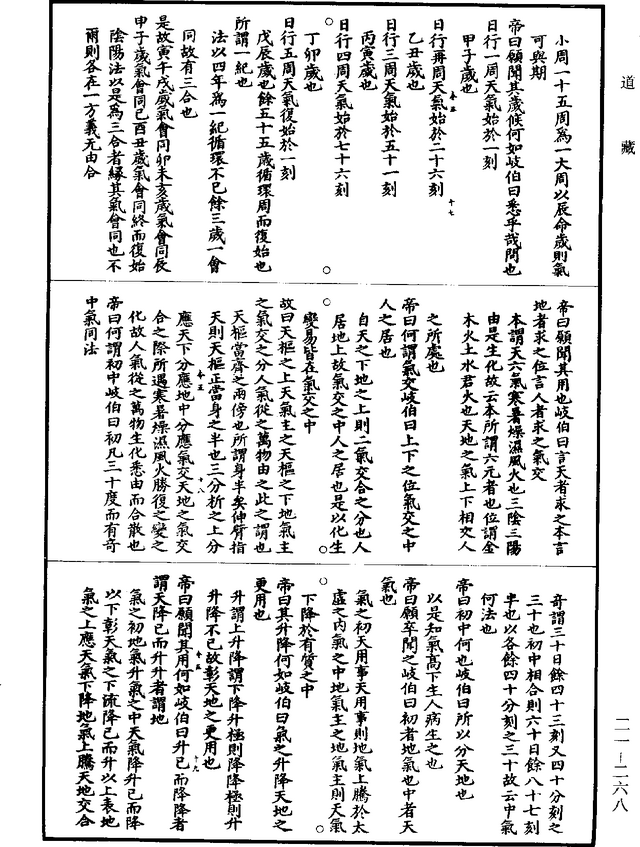 道藏
小周一十五周為一大周以辰命歲則氣
可與期
帝曰願聞其歲候何如岐伯曰悉乎哉問也
日行一周天氣始於一刻
甲子歲也
日行再周天氣始於二十六刻
乙丑歲也
日行三周天氣始於五十一刻
丙寅歲也
日行四周天氣始於七十六刻
丁卯歲也
日行五周天氣復始於一刻
戊辰歲也餘五十五歲循環周而復始也
所謂一紀也
法以四年為一紀循環不已餘三歲一會
同故有三合也
是故寅午戌歲氣會同卯未亥歲氣會同辰
申子歲氣會同巳酉丑歲氣會同終而復始
陰陽法以是為三合者緣其氣會同也不
爾則各在一方義无由合
帝曰願聞其用也岐伯曰言天者求之本言
地者求之位言人者求之氣交
本謂天六氣寒暑燥濕風火也三陰三陽
由是生化故云本所謂六元者也位謂金
木火土水君火也天地之氣上下相交人
之所處也
帝曰何謂氣交岐伯曰上下之位氣交之中
人之居也
自天之下地之上則二氣交合之分也人
居地上故氣交之中人之居也是以化生
變易皆在氣交之中
故曰天樞之上天氣主之天樞之下地氣主
之氣交之分人氣從之萬物由之此之謂也
天樞當齊之兩傍也所謂身半矣伸臂指
天則天樞正當身之半也三分折之上分
應天下分應地中分應氣交天地之氣交
合之際所遇寒暑燥濕風火勝復之變之
化故人氣從之萬物生化悉由而合散也
帝曰何謂初中岐伯曰初凡三十度而有奇
中氣同法
奇謂三十日餘四十三刻又四十分刻之
三十也初中相合則六十日餘八十七刻
半也以各餘四十分刻之三十故云中氣
同法也
帝曰初中何也岐伯曰所以分天地也
以是知氣高下生人病生之也
帝曰願卒聞之岐伯曰初者地氣也中者天
氣也
氣之初天用事天用事則地氣上騰於太
虛之內氣之中地氣主之地氣主則天氣
下降於有質之中
帝曰其升降何如岐伯曰氣之升降天地之
更用也
升謂上升降謂下降升極則降降極則升
升降不已故彰天地之更用也
帝曰願聞其用何如岐伯曰升已而降降者
謂天降已而升升者謂地
氣之初地氣升氣之中天氣降升已而降
以下彰天氣之下流降已而升以上表地
氣之上應天氣下降地氣上騰天地交合
二一-二六八